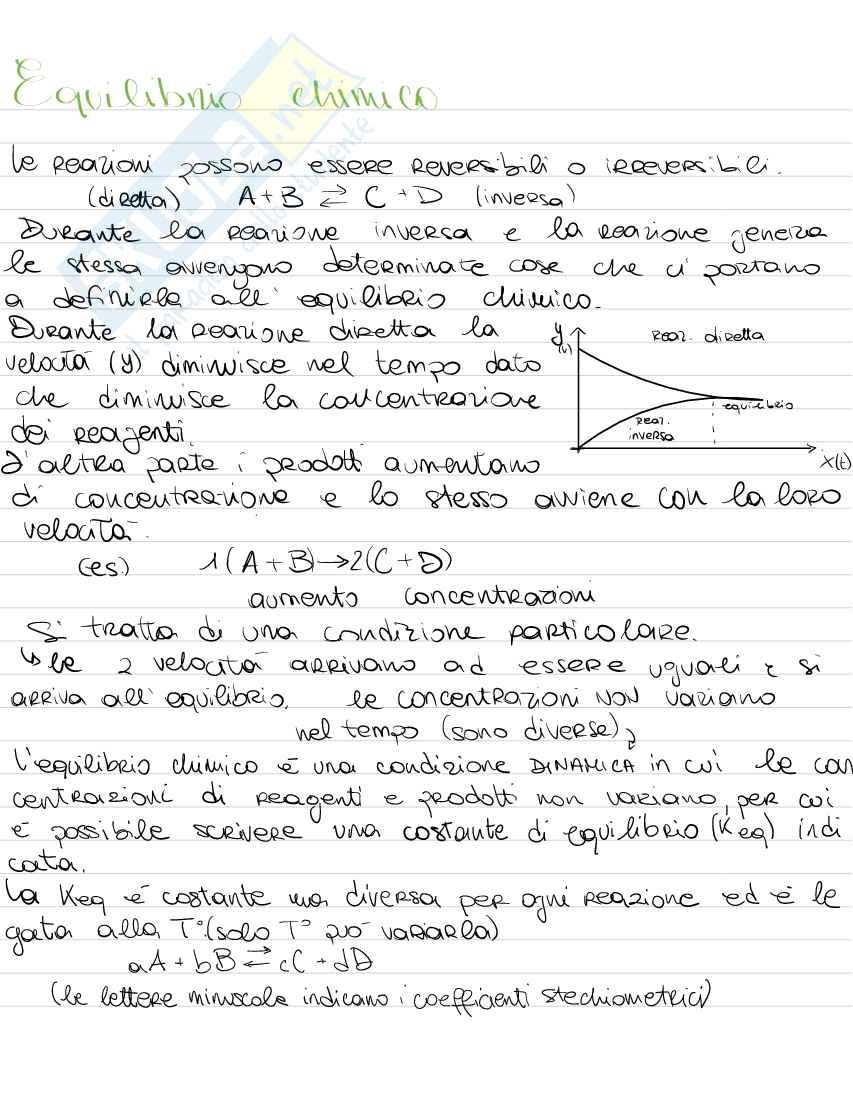 Equilibrio chimico
le reazioni possono essere reversibili o irreversibili.
(diretta) A + B ⇄ C + D (inversa)
Durante la reazione inversa e la reazione genera
le stessa avvengono determinate cose che ci portano
a definirle all' equilibrio chimico.
Durante la reazione diretta la
velocità (y) diminuisce nel tempo dato
che diminuisce la concentrazione
dei reagenti.
D'altra parte i prodotti aumentano
di concentrazione e lo stesso avviene con la loro
velocità.
y (v)
reaz. diretta
equilibrio
reaz. inversa
x(t)
(es.) 1(A + B) → 2(C + D)
aumento concentrazioni
Si tratta di una condizione particolare.
↳ le 2 velocità arrivano ad essere uguali e si
arriva all' equilibrio. le concentrazioni NON variano
nel tempo (sono diverse)
l'equilibrio chimico è una condizione DINAMICA in cui le con
centrazioni di reagenti e prodotti non variano, per cui
è possibile scrivere una costante di equilibrio (Keq) indi
cata.
la Keq è costante ma diversa per ogni reazione ed è le
gata alla T° (solo T° può variarla)
aA + bB ⇄ cC + dD
(le lettere minuscole indicano i coefficienti stechiometrici)